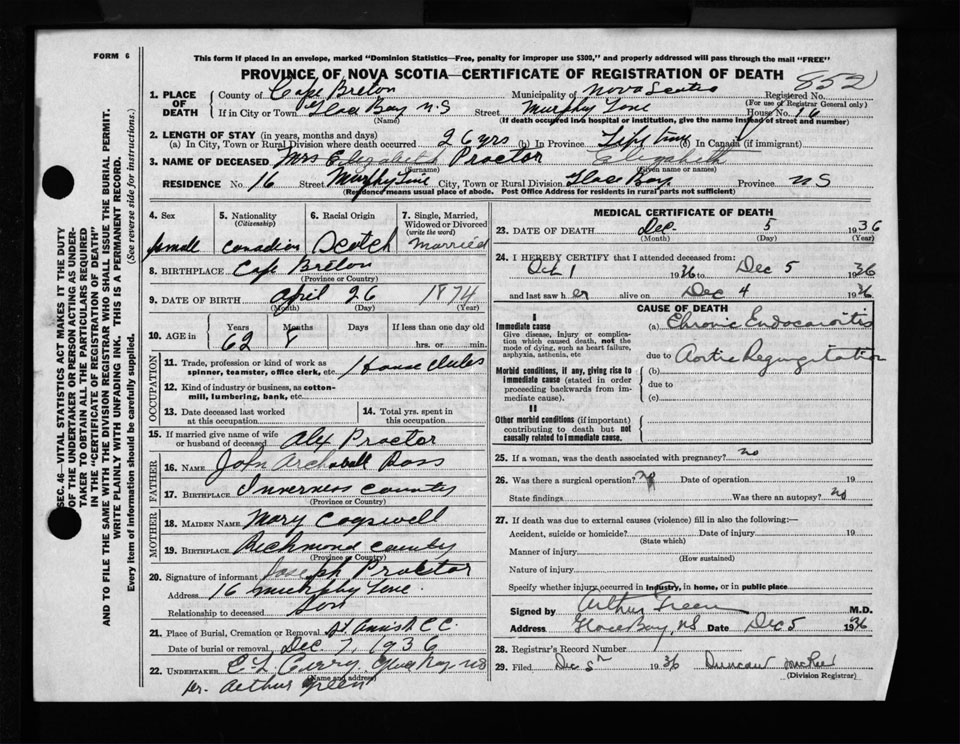 FORM 6
This form if placed in an envelope, marked "Dominion Statistics—Free, penalty for improper use $300," and properly addressed will pass through the mail "FREE"
PROVINCE OF NOVA SCOTIA—CERTIFICATE OF REGISTRATION OF DEATH
852
SEC. 46—VITAL STATISTICS ACT MAKES IT THE DUTY
OF THE UNDERTAKER OR PERSON ACTING AS UNDER-
TAKER TO OBTAIN ALL THE PARTICULARS REQUIRED
IN THE "CERTIFICATE OF REGISTRATION OF DEATH"
AND TO FILE THE SAME WITH THE DIVISION REGISTRAR WHO SHALL ISSUE THE BURIAL PERMIT.
WRITE PLAINLY WITH UNFADING INK. THIS IS A PERMANENT RECORD.
Every item of information should be carefully supplied. (See reverse side for instructions.)
1. PLACE OF DEATH
County of Cape Breton Municipality of Nova Scotia Registered No.
(For use of Registrar General only)
If in City or Town Glace Bay N.S Street Murphy Lane House No. 16
(Name) (If death occurred in a hospital or institution, give the name instead of street and number)
2. LENGTH OF STAY (in years, months and days)
(a) In City, Town or Rural Division where death occurred 26 yrs (b) In Province Life time (c) In Canada (if immigrant)
3. NAME OF DECEASED Mrs Elizabeth Proctor Elizabeth
(Surname) (Given name or names)
RESIDENCE No. 16 Street Murphy Lane City, Town or Rural Division Glace Bay Province NS
(Residence means usual place of abode. Post Office Address for residents in rural parts not sufficient)
4. Sex 5. Nationality (Citizenship) 6. Racial Origin 7. Single, Married, Widowed or Divorced (write the word)
female Canadian Scotch Married
8. BIRTHPLACE Cape Breton
(Province or Country)
9. DATE OF BIRTH April 26 1874
(Month) (Day) (Year)
10. AGE in Years Months Days If less than one day old
62 8 hrs. or min.
OCCUPATION
11. Trade, profession or kind of work as
spinner, teamster, office clerk, etc. House duties
12. Kind of industry or business, as cotton-
mill, lumbering, bank, etc.
13. Date deceased last worked at this occupation 14. Total yrs. spent in this occupation
15. If married give name of wife or husband of deceased Alex Proctor
FATHER
16. NAME John Archibald Ross
17. BIRTHPLACE Inverness County
(Province or Country)
MOTHER
18. MAIDEN NAME Mary Cogswell
19. BIRTHPLACE Richmond County
(Province or Country)
20. Signature of informant Joseph Proctor
Address 16 Murphy Lane
Relationship to deceased Son
21. Place of Burial, Cremation or Removal St Anns R.C.C.
Date of burial or removal Dec. 7, 1936
22. UNDERTAKER C. L. Curry, Glace Bay NS
(Name and address)
Dr. Arthur Green
MEDICAL CERTIFICATE OF DEATH
23. DATE OF DEATH Dec. 5 1936
(Month) (Day) (Year)
24. I HEREBY CERTIFY that I attended deceased from:
Oct 1 1936 to Dec 5 1936
and last saw her alive on Dec 4 1936
CAUSE OF DEATH
I
Immediate cause (a) Chronic Endocarditis
Give disease, injury or complica-
tion which caused death, not the
mode of dying, such as heart failure,
asphyxia, asthenia, etc
due to Aortic Regurgitation
Morbid conditions, if any, giving rise to
immediate cause (stated in order
proceeding backwards from im-
mediate cause).
(b)
due to
(c)
II
Other morbid conditions (if important)
contributing to death but not
causally related to immediate cause.
25. If a woman, was the death associated with pregnancy? no
26. Was there a surgical operation? no Date of operation 19
State findings Was there an autopsy? no
27. If death was due to external causes (violence) fill in also the following:—
Accident, suicide or homicide? Date of injury 19
(State which)
Manner of injury
(How sustained)
Nature of injury
Specify whether injury occurred in industry, in home, or in public place
Signed by Arthur Green M.D.
Address Glace Bay, NS Date Dec 5 1936
28. Registrar's Record Number
29. Filed Dec 5th 1936 Duncan
(Division Registrar)